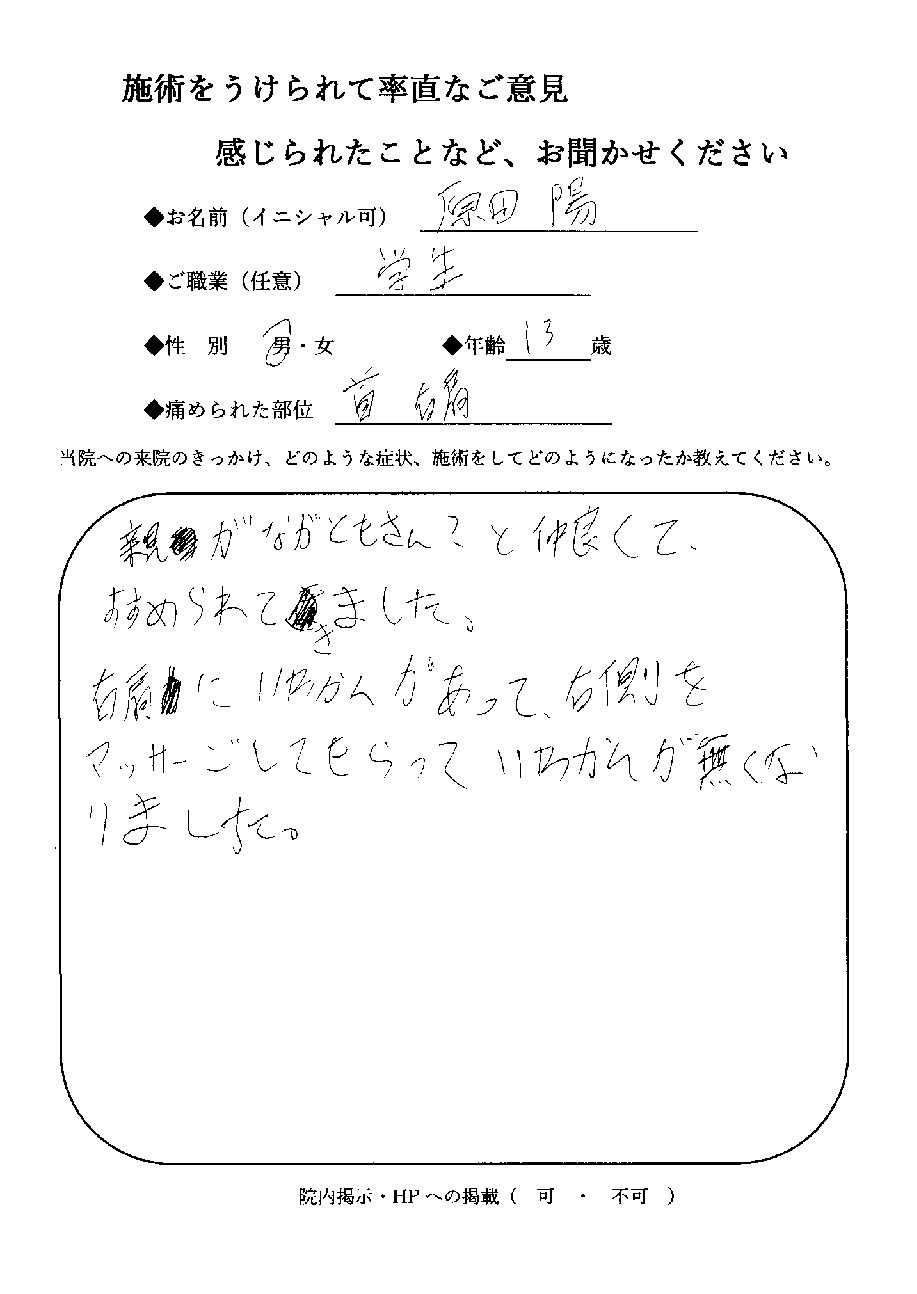 施術をうけられて率直なご意見
感じられたことなど、お聞かせください
◆お名前（イニシャル可） 原田 陽
◆ご職業（任意） 学生
◆性 別 男・女 ◆年齢 13 歳
◆痛められた部位 首 右肩
当院への来院のきっかけ、どのような症状、施術をしてどのようになったか教えてください。
親がながともさん?と仲良くて、
おすすめられてきました。
右肩にいわかんがあって、右側を
マッサージしてもらっていわかんが無くな
りました。
院内掲示・HPへの掲載（ 可 ・ 不可 ）